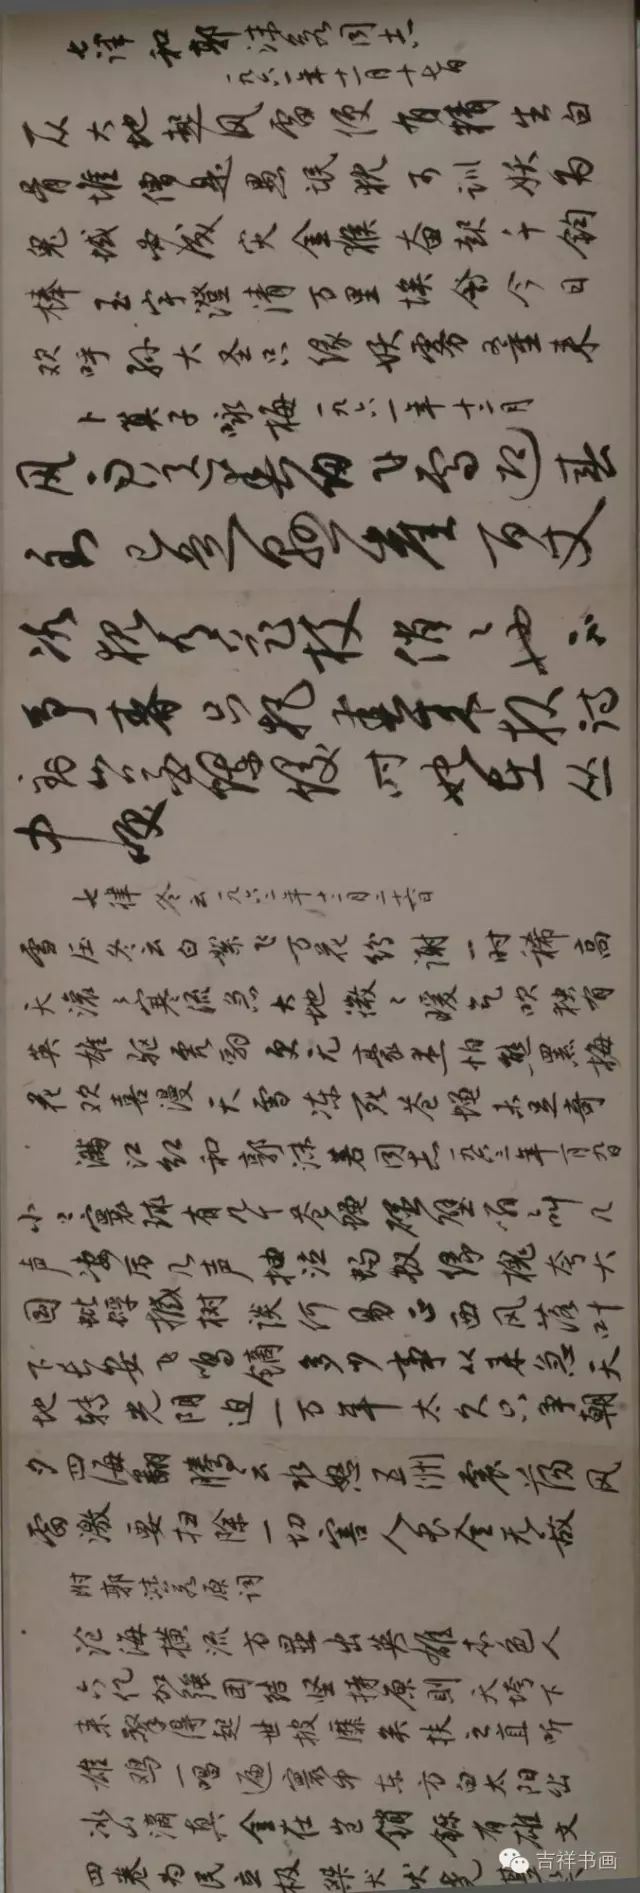 七律 和郭沫若同志
一九六一年十一月十七日
一从大地起风雷便有精生白
骨堆僧是愚氓犹可训妖为
鬼蜮必成灾金猴奋起千钧
棒玉宇澄清万里埃今日
欢呼孙大圣只缘妖雾又重来
卜算子咏梅一九六一年十二月
风雨送春归飞雪迎春
到已是悬崖百丈
冰犹有花枝俏俏也不
争春只把春来报待
到山花烂漫时她在丛
中笑
七律 冬云 一九六二年十二月二十六日
雪压冬云白絮飞万花纷谢一时稀高
天滚々寒流急大地微々暖气吹独有
英雄驱虎豹更无豪杰怕熊罴梅
花欢喜漫天雪冻死苍蝇未足奇
满江红和郭沫若同志一九六三年一月九日
小々寰球有几个苍蝇碰壁嗡々叫几
声凄厉几声抽泣蚂蚁缘槐夸大
国蚍蜉撼树谈何易正西风落叶
下长安飞鸣镝多少事从来急天
地转光阴迫一万年太久只争朝
夕四海翻腾云水怒五洲震荡风
雷激要扫除一切害人虫全无敌
附郭沫若原词
沧海横流方显出英雄本色人
六亿加强团结坚持原则天垮下
来擎得起世披靡矣扶之直听
雄鸡一唱遍寰中东方白太阳出
冰山滴真金在岂销铄有雄文
四卷为民立极桀犬吠尧
吉祥书画